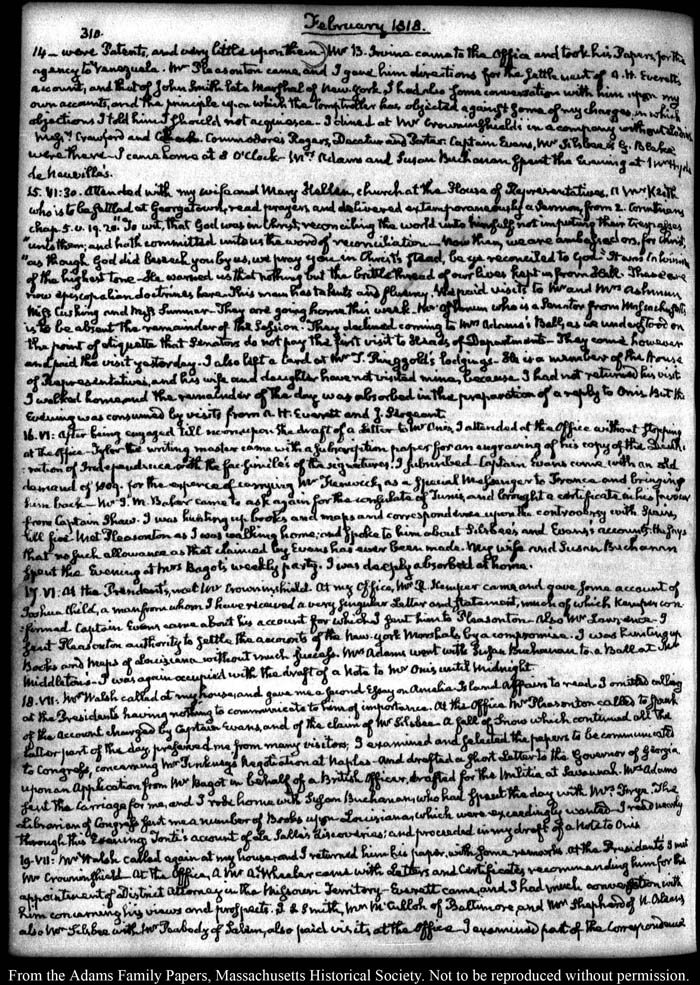 310.
February 1818.
14 — were Patents, and very little upon them. Mr B. Irvine came to the Office and took his Papers, for the
agency to Venezuela. Mr Pleasonton came, and I gave him directions for the settlement of A. H. Everett's
account, and that of John Smith late Marshal of New York. I had also some conversation with him upon my
own accounts, and the principle upon which the Comptroller has objected against some of my charges, in which
objections I told him I should not acquiesce. I dined at Mr Crowninshield's in a company without Ladies
Messrs Crawford and Commodores Rogers, Decatur and Porter. Captain Evans, Mr Silsbee & G. Blake
were there. I came home at 8 O'Clock. Mrs Adams and Susan Buchanan spent the Evening at Mr Hyde
de Neuville's.
15. VI:30. Attended with my wife and Mary Hellen, church at the House of Representatives. A Mr Keith
who is to be settled at Georgetown, read prayers and delivered extemporaneously a Sermon, from 2. Corinthians
chap. 5. v. 19. 20. "To wit, that God was in Christ, reconciling the world unto himself not imputing their trespasses
"unto them; and hath committed unto us the word of reconciliation — Now then, we are ambassadors, for Christ,
"as though God did beseech you by us, we pray you in Christ's stead, be ye reconciled to God. It was Calvinism
of the highest tone. He warned us that nothing but the brittle thread of our lives kept us from Hell. These are
now episcopalian doctrines here. This man has talents and fluency. We paid visits to Mr and Mrs Ashmun
Miss Cushing and Miss Sumner. They are going home this week. Mr Ashmun who is a Senator from Massachusetts,
is to be absent the remainder of the Session. They declined coming to Mrs Adams's Ball, as we understood on
the point of etiquette that Senators do not pay the first visit to Heads of Department. They came however
and paid the visit yesterday. I also left a card at Mr T. Ringgold's lodgings. He is a member of the House
of Representatives, and his wife and daughter have not visited mine, because I had not returned his visit
I walked home and the remainder of the day was absorbed in the preparation of a reply to Onis But the
Evening was consumed by visits from A. H. Everett and J. Sergeant.
16. VI: After being engaged till noon upon the draft of a Letter to Mr Onis, I attended at the Office without stopping
at the Office. Tyler the writing master came with a subscription paper for an engraving of his copy of the Decla-
ration of Independence with the fac-simile's of the signatures. I subscribed. Captain Evans came with an old
demand of 1809. for the expence of carrying Mr Fenwick, as a Special Messenger to France and bringing
him back — Mr J. M. Baker came to ask again for the consulate of Tunis, and brought a certificate in his favour
from Captain Shaw. I was hunting up books and maps and correspondence upon the controversy with Spain,
till five. Met Pleasonton as I was walking home; and spoke to him about Silsbee's and Evans's accounts. He says
that no such allowance as that claimed by Evans has ever been made. My wife and Susan Buchanan
spent the Evening at Mrs Bagot's weekly party. I was deeply absorbed at home.
17. VI. At the President's, met Mr Crowninshield. At my Office, Mr R. Kemper came and gave some account of
Joshua Child, a man from whom I have received a very singular Letter and Statement, much of which Kemper con-
firmed. Captain Evans came about his account for which I sent him to Pleasonton. Also Mr Lawrence. I
sent Pleasonton authority to settle the accounts of the New-york Marshals by a compromise. I was hunting up
Books and Maps of Louisiana without much success. Mrs Adams went with Susan Buchanan to a Ball at Mr
Middleton's. I was again occupied with the draft of a Note to Mr Onis until Midnight.
18. VII: Mr Walsh called at my house, and gave me a second Essay on Amelia-Island Affairs to read. I omitted calling
at the President's having nothing to communicate to him of importance. At the Office Mr Pleasonton called to speak
of the Account charged by Captain Evans, and of the claim of Mr Silsbee. A fall of Snow which continued all the
latter part of the day, preserved me from many visitors, I examined and selected the papers to be communicated
to Congress, concerning Mr Pinkney's Negotiation at Naples. And drafted a short Letter to the Governor of Georgia
upon an Application from Mr Bagot in behalf of a British Officer, drafted for the Militia at Savannah. Mrs Adams
sent the Carriage for me, and I rode home with Susan Buchanan, who had spent the day with Mrs Frye. The
Librarian of Congress sent me a number of Books upon Louisiana, which were exceedingly wanted. I read nearly
through this Evening Tonti's account of La Salle's discoveries; and proceeded in my draft of a Note to Onis
19. VII: Mr Walsh called again at my house, and I returned him his paper, with some remarks. At the President's I met
Mr Crowninshield. At the Office, A Mr A. Wheeler came with Letters and Certificates, recommending him for the
appointment of District Attorney in the Missouri Territory — Everett came, and I had much conversation with
him concerning his views and prospects. Smith, Mr McCulloh of Baltimore, and Mr Shepherd of N. Orleans
also Mr Silsbee with Mr Peabody of Salem, also paid visits at the Office. I examined part of the Correspondence
From the Adams Family Papers, Massachusetts Historical Society. Not to be reproduced without permission.